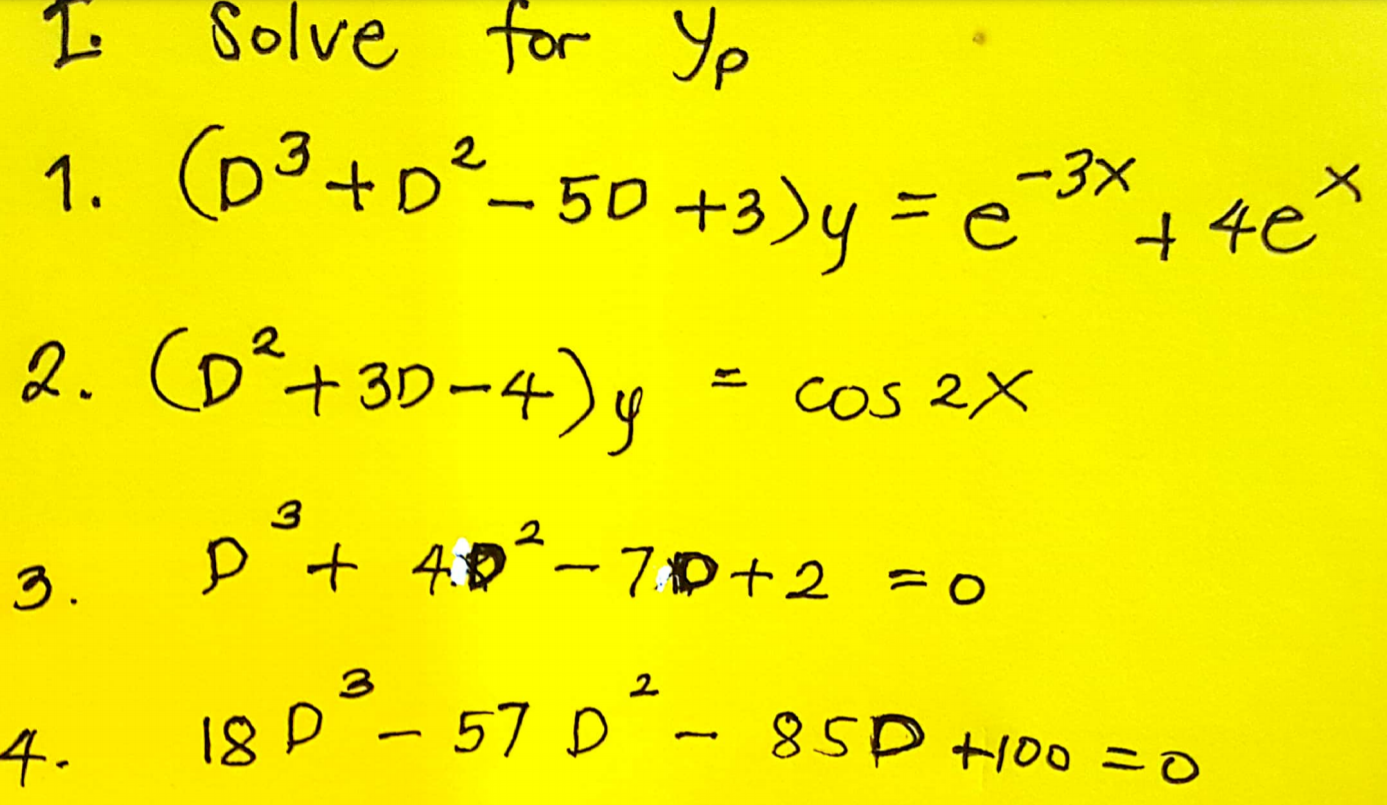 I. Solve for yₚ
1. (D³ + D² - 5D + 3)y = e⁻³ˣ + 4eˣ
2. (D² + 3D - 4)y = cos 2x
3. D³ + 4D² - 7D + 2 = 0
4. 18D³ - 57D² - 85D + 100 = 0